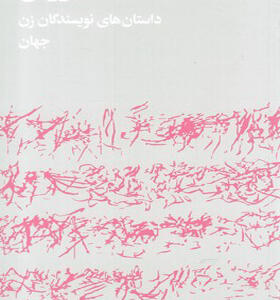 داستان‌های نویسندگان زن
جهان